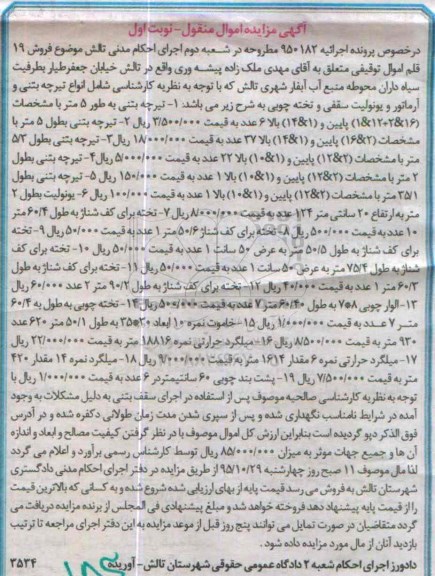 آگهی مزایده اموال منقول - نوبت اول
درخصوص پرونده اجرائیه ۹۵۰۱۸۲ مطروحه در شعبه دوم اجرای احکام مدنی تالش موضوع فروش ۱۹
قلم اموال توقیفی متعلق به آقای مهدی ملک زاده پیشه وری واقع در تالش خیابان جعفرطیار بطرفیت
سیاه داران محوطه منبع آب آبفار شهری تالش که با توجه به نظریه کارشناسی شامل انواع تیرچه بتنی و
آرماتور و یونولیت سقفی و تخته چوبی به شرح زیر می باشد: ۱- تیرچه بتنی به طور ۵ متر با مشخصات
پایین و (۱&۱۴) بالا ۶ عدد به قیمت ۳/۵۰۰/۰۰۰ ریال ۲- تیرچه بتنی بطول ۵ متر با
مشخصات (۲&۱۶) پایین و (۱&۱۴) بالا ۳۷ عدد به قیمت ۱۸/۰۰۰/۰۰۰ ریال ۳- تیرچه بتنی بطول ۵/۳
متر با مشخصات (۲&۱۲) پایین و (۱&۱۰) بالا ۲۲ عدد به قیمت ۵/۰۰۰/۰۰۰ ریال ۴- تیرچه بتنی بطول
۲ متر با مشخصات (۲&۱۲) پایین و (۱&۱۰) بالا ۱ عدد به قیمت ۱۵۰/۰۰۰ ریال ۵- تیرچه بتنی بطول
۳۵/۱ متر با مشخصات (۲&۱۲) پایین و (۱&۱۰) بالا ۱ عدد به قیمت ۱۰۰/۰۰۰ ریال ۶- یونولیت بطول ۲
متر به ارتفاع ۲۰ سانتی متر ۱۲۴ عدد به قیمت ۸/۰۰۰/۰۰۰ ریال ۷- تخته برای کف شناژ به طول ۶۰/۴ متر
۱۰ عدد به قیمت ۵۰۰/۰۰۰ ریال ۸- تخته برای کف شناژ ۵۰/۶ متر ۱ عدد به قیمت ۵۰/۰۰۰ ریال ۹- تخته
برای کف شناژ به طول ۵۰/۵ متر به عرض ۵۰ سانت ۱ عدد به قیمت ۵۰/۰۰۰ ریال ۱۰- تخته برای کف
شناژ به طول ۷۵/۴ متر به عرض ۵۰ سانت ۱ عدد به قیمت ۵۰/۰۰۰ ریال ۱۱- تخته برای کف شناژ به طول
۶۰/۳ متر ۱ عدد به قیمت ۴۰/۰۰۰ ریال ۱۲- تخته برای کف شناژ به طول ۹۰/۲ متر ۲ عدد ۶۰/۰۰۰ ریال
۱۳- الوار چوبی ۸*۷ به طول ۶۰/۴۰ متر ۷ عدد به قیمت ۵۰۰/۰۰۰ ریال ۱۴- تخته چوبی به طول ۶۰/۴
متر ۷ عدد به قیمت ۱/۰۰۰/۰۰۰ ریال ۱۵- خاموت نمره ۱۰ ابعاد ۲۰*۳۵ به طول ۵۰/۱ متر ۶۲۰ عدد
۹۳۰ متر به قیمت ۸/۵۰۰/۰۰۰ ریال ۱۶- میلگرد حرارتی نمره ۱۶*۱۸۸ متر به قیمت ۲۲/۰۰۰/۰۰۰ ریال
۱۷- میلگرد حرارتی نمره ۶ مقدار ۱۶۱۴ متر به قیمت ۹/۰۰۰/۰۰۰ ریال ۱۸- میلگرد نمره ۱۴ مقدار ۴۲۰
متر به قیمت ۷/۵۰۰/۰۰۰ ریال ۱۹- پشت بند چوبی ۶۰ سانتیمتر در ۶ عدد به قیمت ۱/۰۰۰/۰۰۰ ریال با
توجه به نظریه کارشناسی صالحیه موصوف پس از استفاده در اجرای سقف بتنی به دلیل مشکلات به وجود
آمده در شرایط نامناسب نگهداری شده و پس از سپری شدن مدت زمان طولانی دکفره شده و در آدرس
فوق الذکر دپو گردیده است بنابراین ارزش کل اموال موصوف با در نظر گرفتن کیفیت مصالح و ابعاد و اندازه
آن ها و جمیع جهات موثر به میزان ۸۵/۰۰۰/۰۰۰ ریال توسط کارشناس رسمی برآورد و اعلام می گردد
لذا مال موصوف ۱۱ صبح روز چهارشنبه ۹۵/۱۰/۲۹ از طریق مزایده در دفتر اجرای احکام مدنی دادگستری
شهرستان تالش به فروش می رسد قیمت پایه از بهای ارزیابی شده شروع شده و به کسانی که بالاترین قیمت
را از قیمت پایه پیشنهاد دهد فروخته خواهد شد و مبلغ پیشنهادی فی المجلس از برنده مزایده دریافت می
گردد متقاضیان در صورت تمایل می توانند پنج روز قبل از موعد مزایده به این دفتر اجرای مراجعه تا ترتیب
بازدید آنان از مال مورد مزایده داده شود.
دادورز اجرای احکام شعبه ۲ دادگاه عمومی حقوقی شهرستان تالش - آوریده ۳۵۲۴